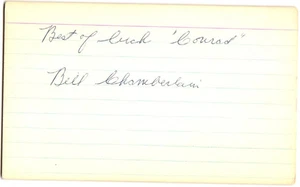 Best of luck 'Conrad"
Bill Chamberlain